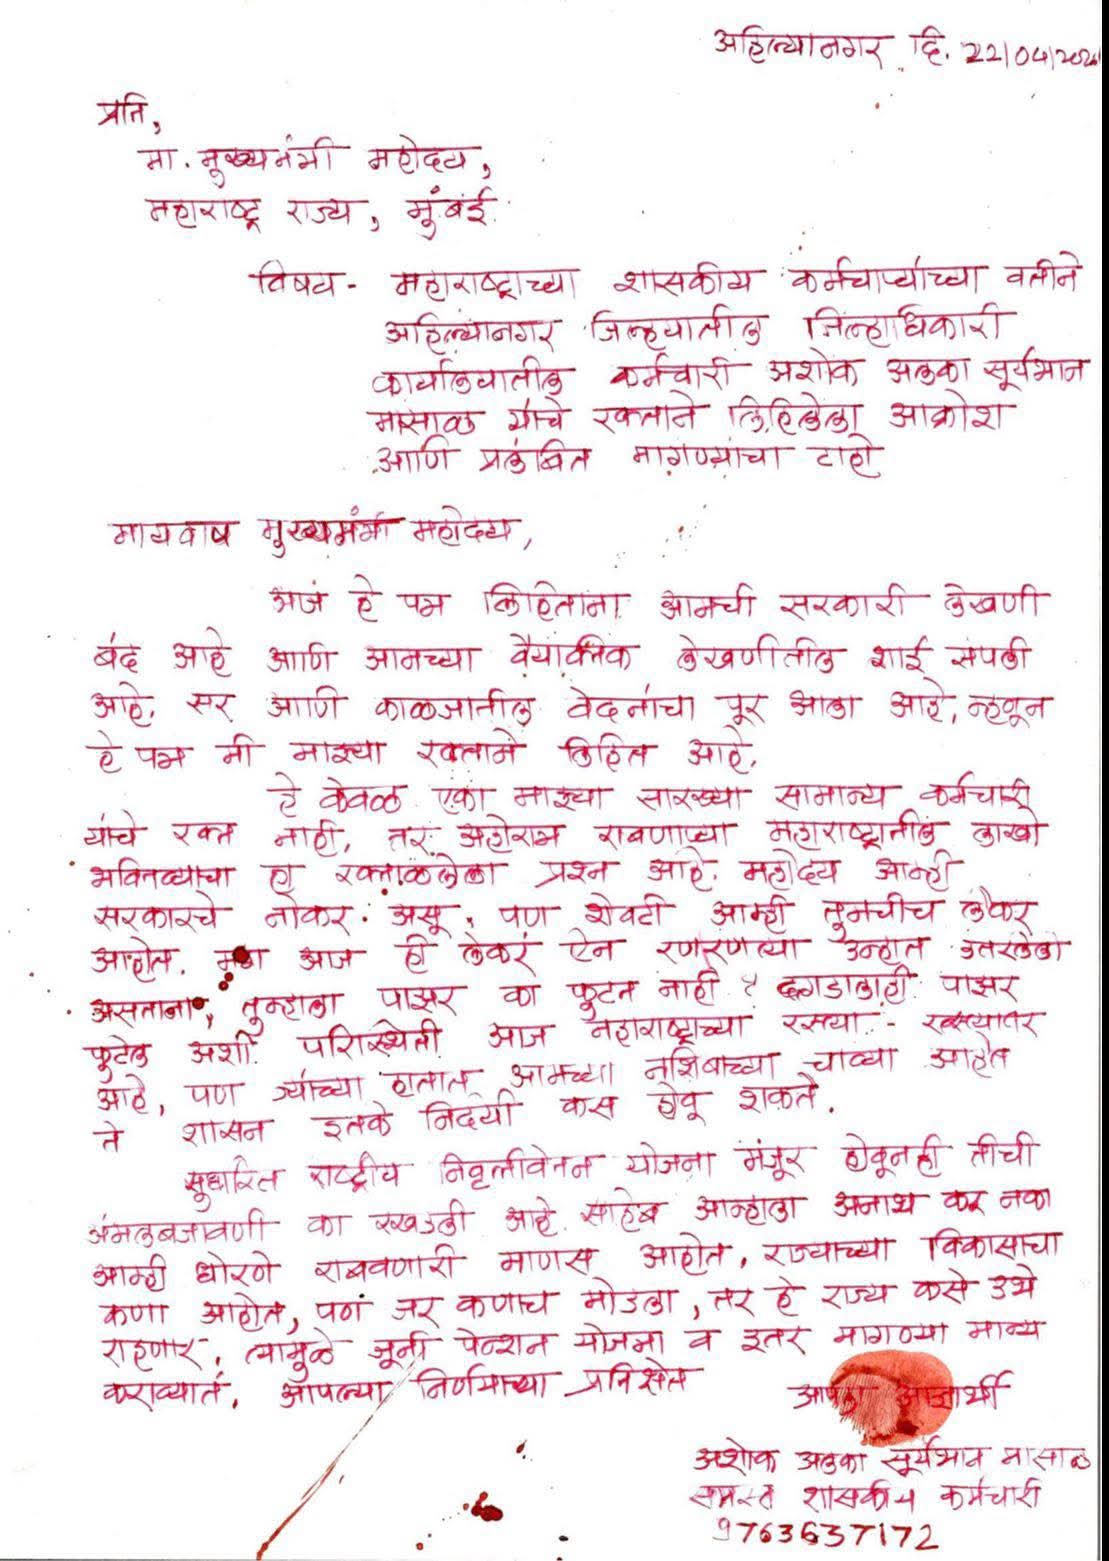 अहिल्यानगर दि. 22/04/202
प्रति,
मा. मुख्यमंत्री महोदय,
महाराष्ट्र राज्य, मुंबई.
विषय - महाराष्ट्राच्या शासकीय कर्मचाऱ्यांच्या वतीने
अहिल्यानगर जिल्ह्यातील जिल्हाधिकारी
कार्यालयातील कर्मचारी अशोक अलका सूर्यभान
मासाळ यांचे रक्ताने लिहिलेला आक्रोश
आणि प्रलंबित मागण्यांचा टाहो
मायबाप मुख्यमंत्री महोदय,
आज हे पत्र लिहिताना आमची सरकारी लेखणी
बंद आहे आणि आमच्या वैयक्तिक लेखणीतील शाई संपली
आहे. सर आणि काळजातील वेदनांचा पूर आला आहे, म्हणून
हे पत्र मी माझ्या रक्ताने लिहित आहे.
हे केवळ एका माझ्या सारख्या सामान्य कर्मचारी
यांचे रक्त नाही, तर अहोरात्र राबणाऱ्या महाराष्ट्रातील लाखो
भवितव्याचा हा रक्ताळलेला प्रश्न आहे. महोदय आम्ही
सरकारचे नोकर असू, पण शेवटी आम्ही तुमचीच लेकर
आहोत. मग आज ही लेकरं ऐन रणरणत्या उन्हात उतरलेली
असताना, तुम्हाला पाझर का फुटत नाही ? दगडालाही पाझर
फुटेल अशी परिस्थिती आज महाराष्ट्राच्या रस्त्या - रस्त्यावर
आहे, पण ज्यांच्या हातात आमच्या नशिबाच्या चाव्या आहेत
ते शासन इतके निर्दयी कस होवू शकते.
सुधारित राष्ट्रीय निवृत्तीवेतन योजना मंजूर होवूनही तीची
अंमलबजावणी का रखडली आहे. साहेब आम्हाला अनाथ कर नका
आम्ही धोरणे राबवणारी माणस आहोत, राज्याच्या विकासाचा
कणा आहोत, पण जर कणाच मोडला, तर हे राज्य कसे उभे
राहणार, त्यामुळे जूनी पेन्शन योजना व इतर मागण्या मान्य
कराव्यात. आपल्या निर्णयाच्या प्रतिक्षेत
आपला आज्ञार्थी
अशोक अलका सूर्यभान मासाळ
समस्त शासकीय कर्मचारी
9763637172